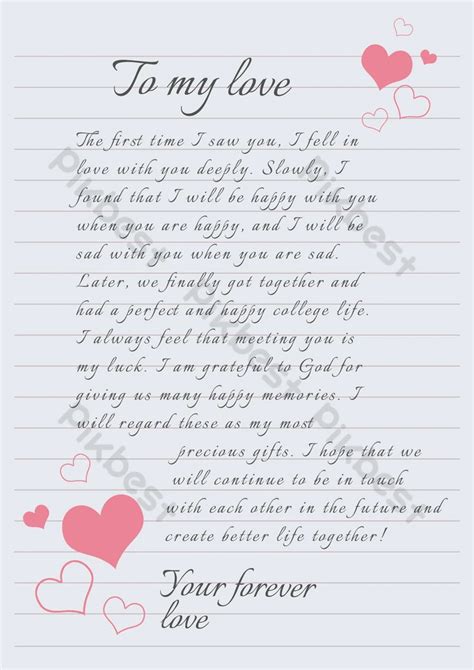 To my love
The first time I saw you, I fell in
love with you deeply. Slowly, I
found that I will be happy with you
when you are happy, and I will be
sad with you when you are sad.
Later, we finally got together and
had a perfect and happy college life.
I always feel that meeting you is
my luck. I am grateful to God for
giving us many happy memories. I
will regard these as my most
precious gifts. I hope that we
will continue to be in touch
with each other in the future and
create better life together!
Your forever
love
pikbest
pikbest
pikbest
pikbest
pikbest